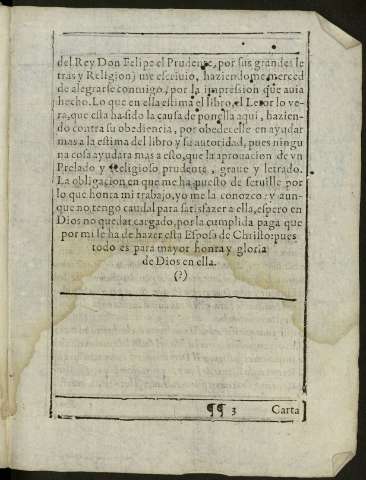 del Rey Don Felipe el Prudente, por sus grandes le
tras y Religion) me escriuio, haziendome merced
de alegrarse conmigo, por la impression que auia
hecho. Lo que en ella estima el libro, el Letor lo ve-
ra, que esta ha sido la causa de ponella aqui, hazien-
do contra su obediencia, por obedecelle en ayudar
mas a la estima del libro y su autoridad, pues ningu
na cosa ayudara mas a esto, que la aprouacion de vn
Prelado y Religioso prudente, graue y letrado.
La obligacion en que me ha puesto de seruille por
lo que honra mi trabajo, yo me la conozco: y aun-
que no tengo caudal para satisfazer a ella, espero en
Dios no quedar cargado, por la cumplida paga que
por mi le ha de hazer esta Esposa de Christo: pues
todo es para mayor honra y gloria
de Dios en ella.
(?)
¶¶ 3 Carta